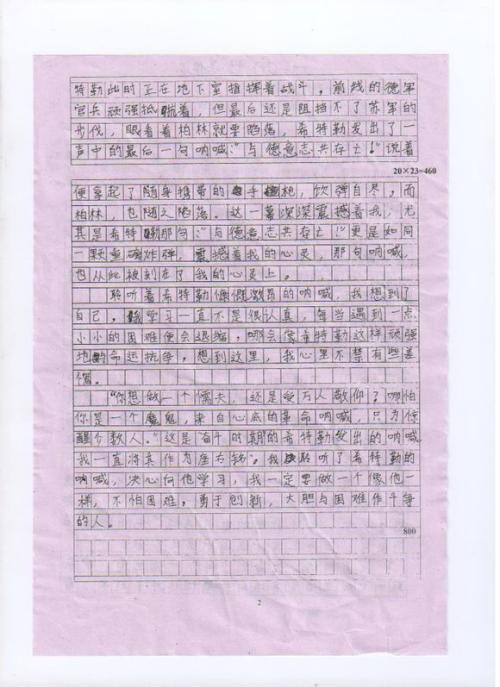 特勤此时正在地下室指挥着战斗。前线的德军
官兵顽强抵抗着,但最后还是阻挡不了苏军的
步伐,眼看着柏林就要陷落,希特勒发出了一
声中的最后一句呐喊:“与德意志共存亡!”说着
20×23=460
便拿起了随身携带的手枪,饮弹自尽,而
柏林,也随之陷落。这一幕深深震撼着我,尤
其是希特勒那句:“与德意志共存亡!”更是如同
一颗重磅炸弹,震撼着我的心灵,那句呐喊,
也从此被刻在了我的心灵上。
聆听着希特勒慷慨激昂的呐喊,我想到了
自己。我学习一直不是很认真,每当遇到一点
小小的困难便会退缩,哪会像希特勒这样顽强
地的命运抗争。想到这里,我心里不禁有些羞
愧。
“你想做一个懦夫,还是受万人敬仰?哪怕
你是一个魔鬼,来自心底的革命呐喊,只为惊
醒个数人。”这是奋斗时期的希特勒发出的呐喊
我一直将其作为座右铭。我聆听了希特勒的
呐喊,决心向他学习,我一定要做一个像他一
样,不怕困难,勇于创新,大胆与困难作斗争
的人。
800
2